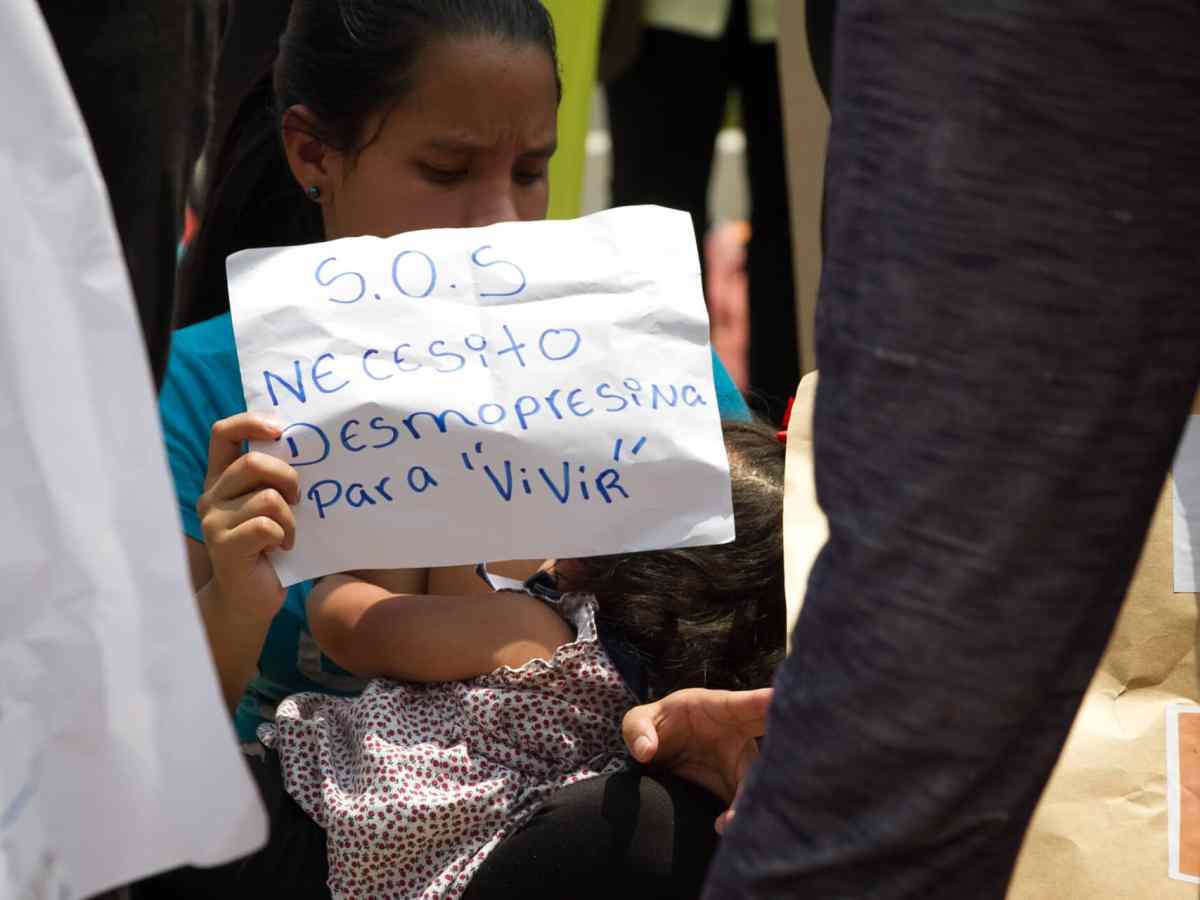 S.O.S
NECESITO
DESMOPRESINA
para "ViViR"